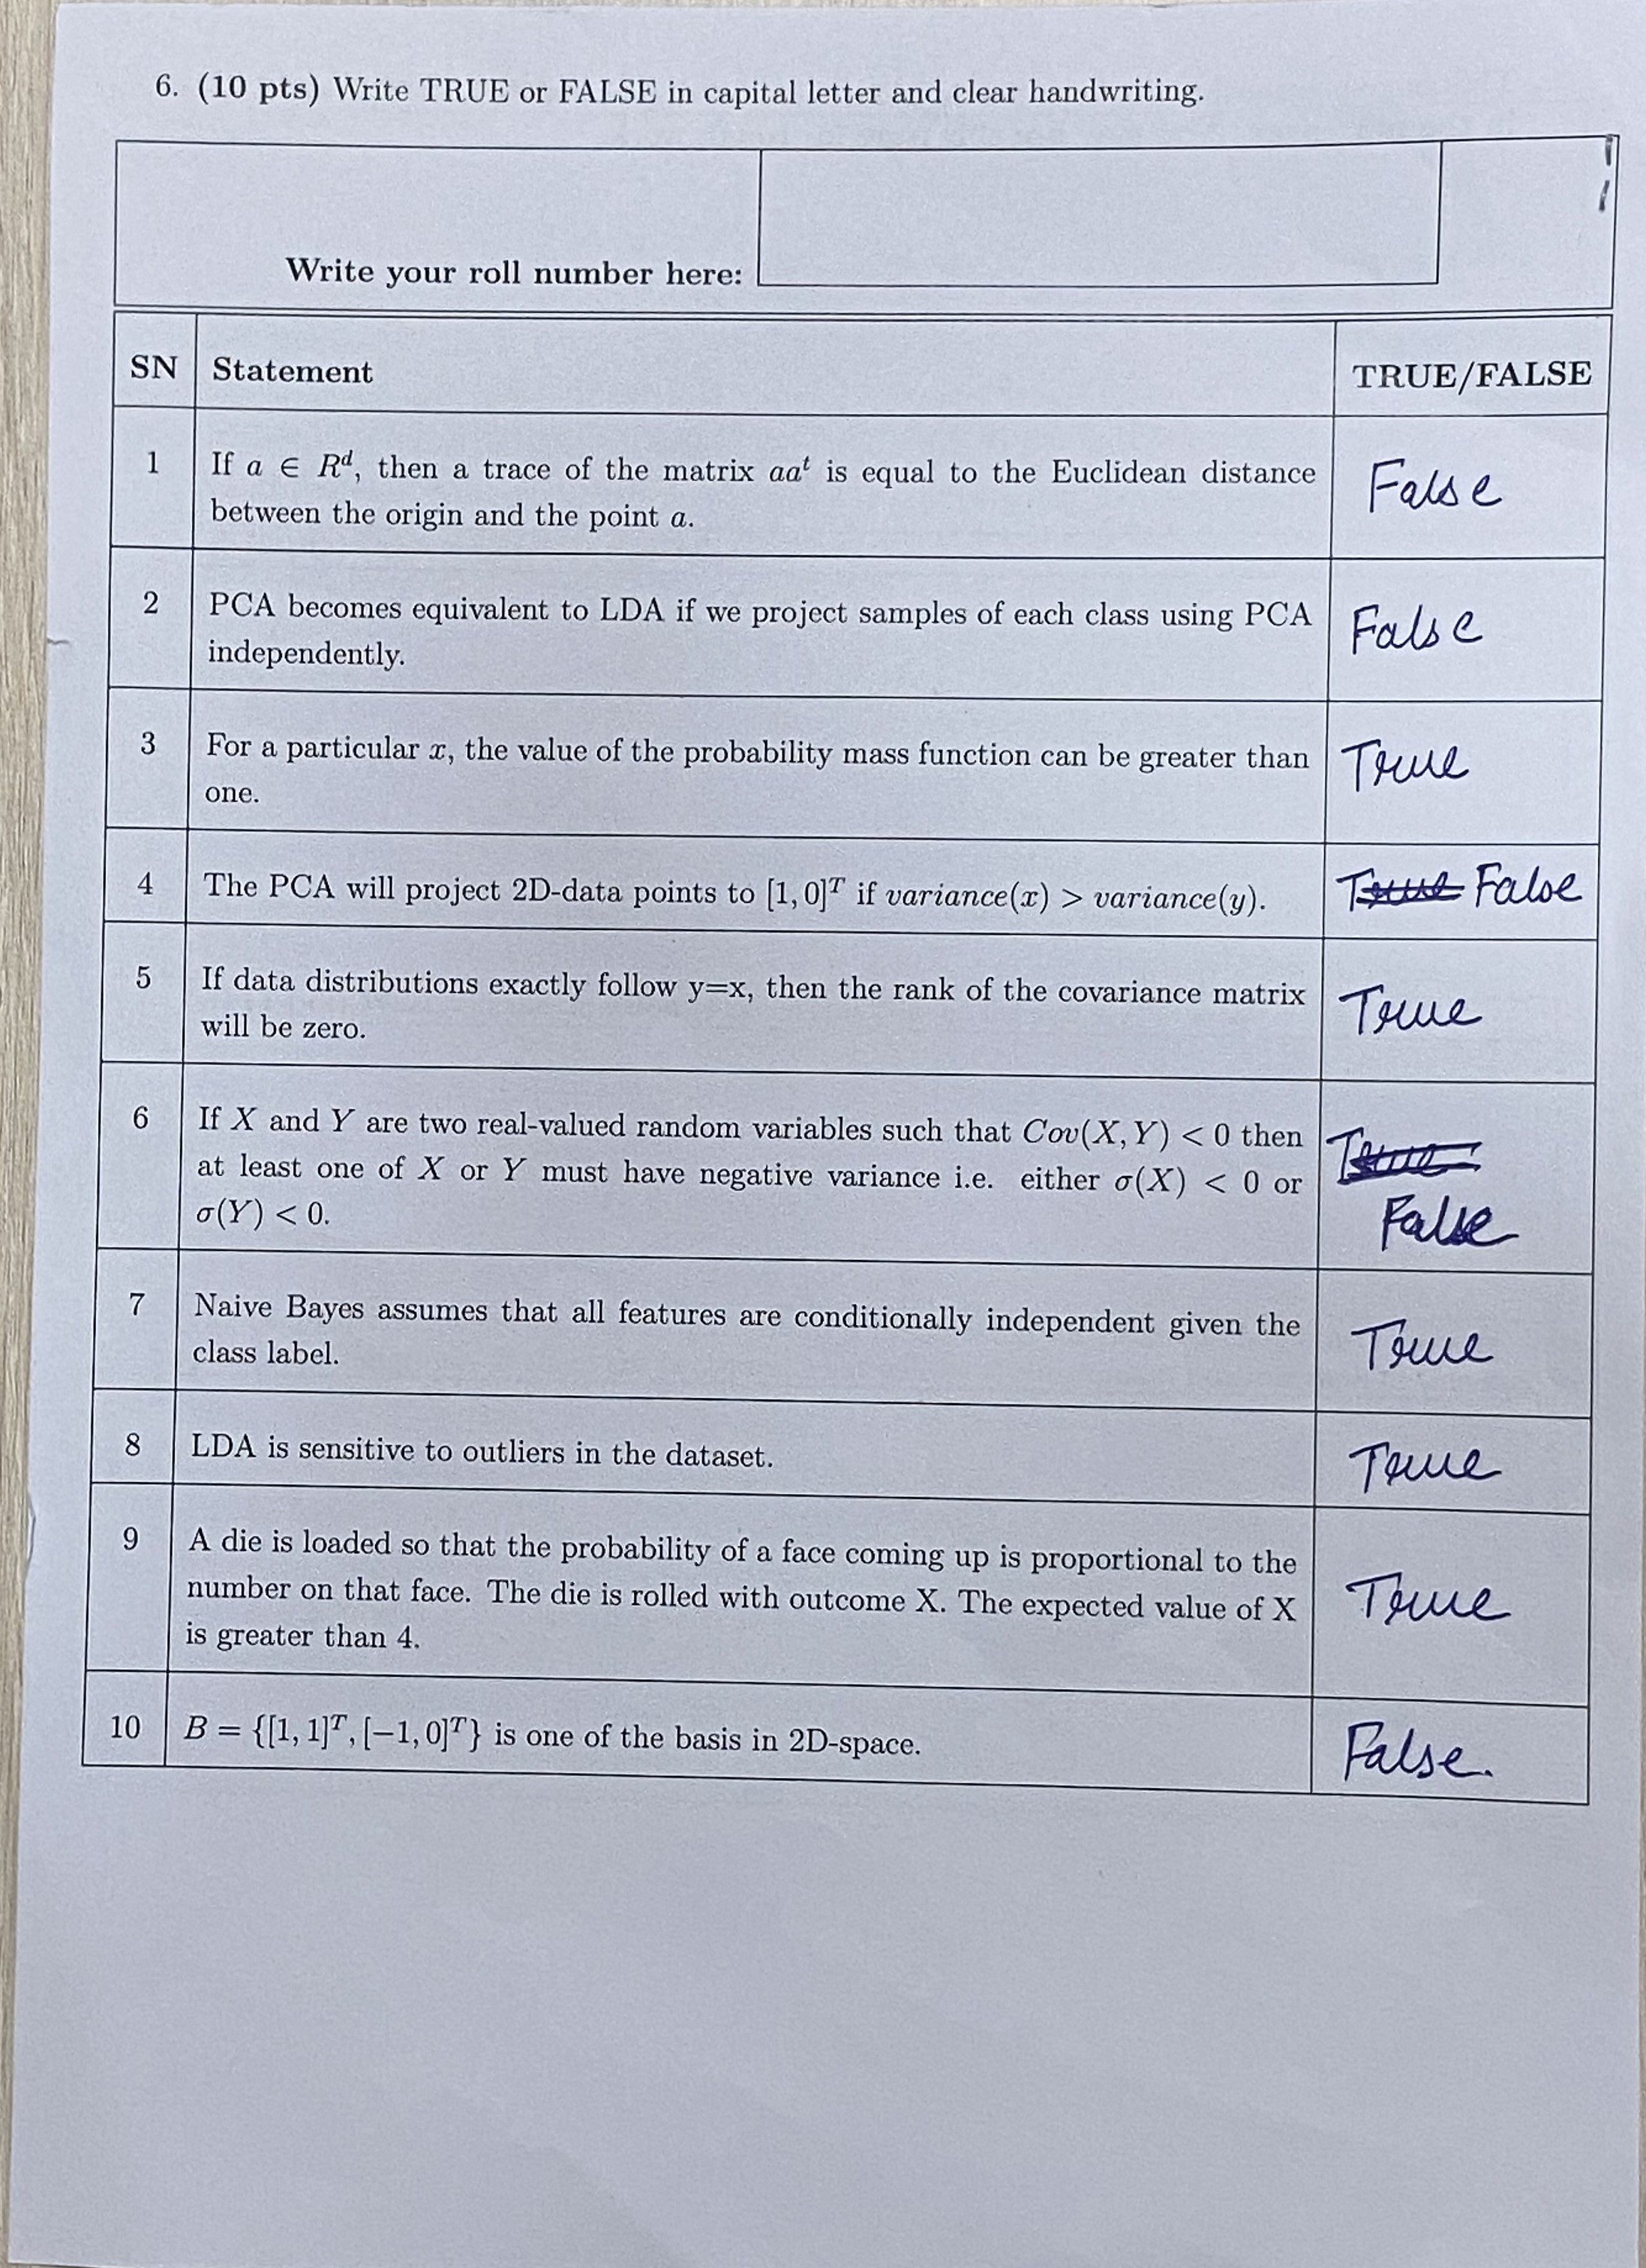 6. (10 pts) Write TRUE or FALSE in capital letter and clear handwriting.
Write your roll number here:
SN Statement TRUE/FALSE
1 If a ∈ Rᵈ, then a trace of the matrix aaᵗ is equal to the Euclidean distance
between the origin and the point a.
False
2 PCA becomes equivalent to LDA if we project samples of each class using PCA
independently.
False
3 For a particular x, the value of the probability mass function can be greater than
one.
True
4 The PCA will project 2D-data points to [1, 0]ᵀ if variance(x) > variance(y).
True False
5 If data distributions exactly follow y=x, then the rank of the covariance matrix
will be zero.
True
6 If X and Y are two real-valued random variables such that Cov(X, Y) < 0 then
at least one of X or Y must have negative variance i.e. either σ(X) < 0 or
σ(Y) < 0.
True
False
7 Naive Bayes assumes that all features are conditionally independent given the
class label.
True
8 LDA is sensitive to outliers in the dataset.
True
9 A die is loaded so that the probability of a face coming up is proportional to the
number on that face. The die is rolled with outcome X. The expected value of X
is greater than 4.
True
10 B = {[1, 1]ᵀ, [−1, 0]ᵀ} is one of the basis in 2D-space.
False.